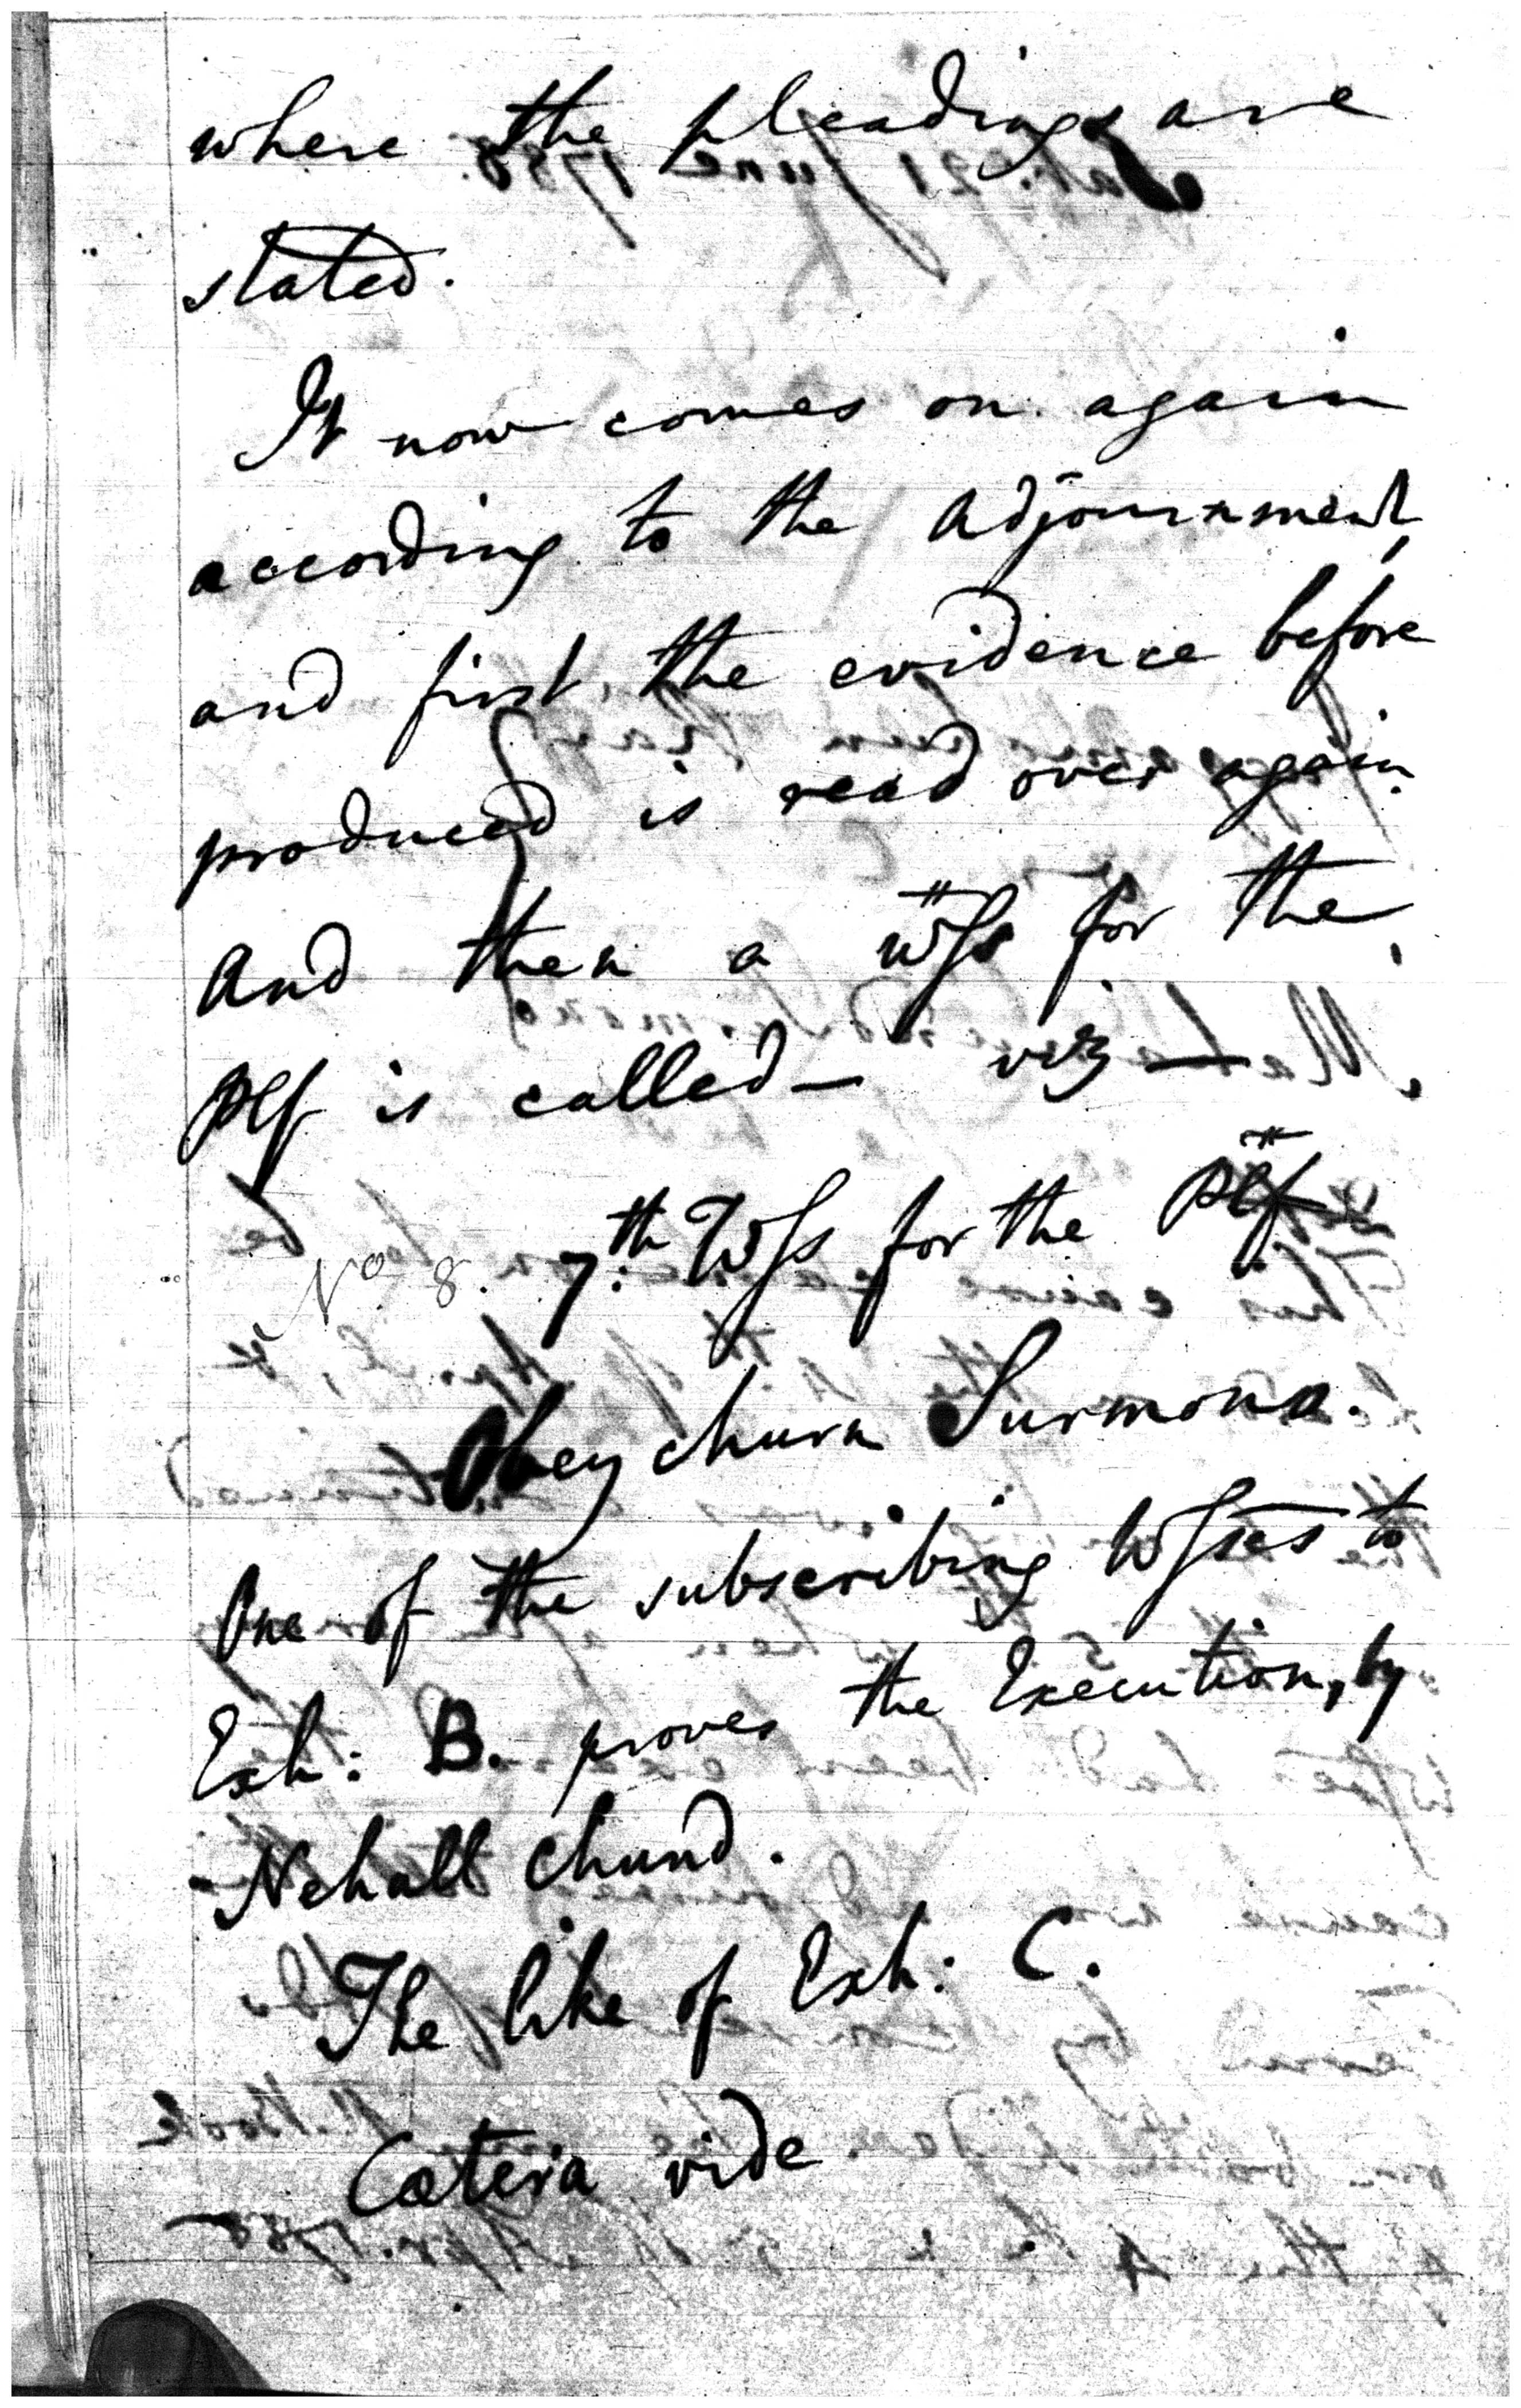 where the pleadings are
stated.
It now comes on again
according to the Adjournment,
and first the evidence before
produced is read over again
And then a Wſs for the
Plf is called — viz —
No 8. 7th: Wſs for the Plf
Obeychurn Surmona.
One of the subscribing Wſses to
Exh: B. proves the Execution, by
Nehall Chund.
The like of Exh: C.
Cætera vide